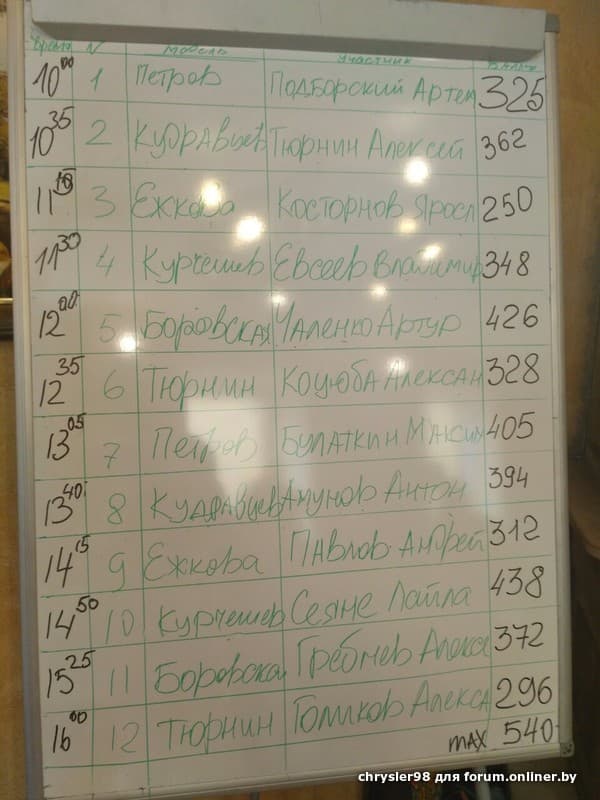 Время N Модель Участник Баллы
10 00 1 Петров Подборский Артем 325
10 35 2 Кудравцев Тюрнин Алексей 362
11 10 3 Ежкова Косторнов Яросл 250
11 30 4 Курчешев Евсеев Владимир 348
12 00 5 Боровская Чаленко Артур 426
12 35 6 Тюрнин Коцюба Алексан 328
13 05 7 Петров Булаткин Максим 405
13 40 8 Кудравцев Ахунов Антон 394
14 15 9 Ежкова Павлов Андрей 312
14 50 10 Курчешев Сеяне Лайла 438
15 25 11 Боровская Гребнев Алекс 372
16 00 12 Тюрнин Голиков Алекса 296
max 540
chrysler98 для forum.onliner.by